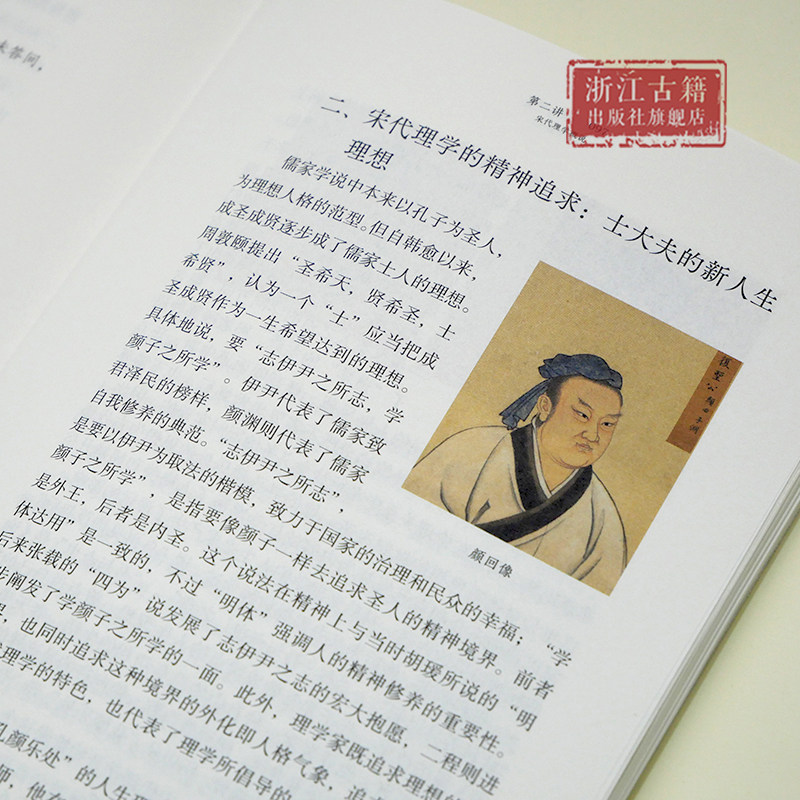 未答问，
第二讲
宋代理学
浙江古籍
出版社旗舰店
二、宋代理学的精神追求：士大夫的新人生
理想
儒家学说中本来以孔子为圣人，
为理想人格的范型。但自韩愈以来，
成圣成贤逐步成了儒家士人的理想。
周敦颐提出“圣希天，贤希圣，士
希贤”，认为一个“士”应当把成
圣成贤作为一生希望达到的理想。
具体地说，要“志伊尹之所志，学
颜子之所学”。伊尹代表了儒家致
君泽民的榜样，颜渊则代表了儒家
自我修养的典范。“志伊尹之所志”，
是要以伊尹为取法的楷模，致力于国家的治理和民众的幸福；“学
颜子之所学”，是指要像颜子一样去追求圣人的精神境界。前者
是外王，后者是内圣。这个说法在精神上与当时胡瑗所说的“明
体达用”是一致的，不过“明体”强调人的精神修养的重要性。
后来张载的“四为”说发展了志伊尹之志的宏大抱愿，二程则进
步阐发了学颜子之所学的一面。此外，理学家既追求理想的
，也同时追求这种境界的外化即人格气象，追
理学的特色，也代表了理学所倡导的
孔颜乐处”的人生
师，他在
復聖公顏子淵
颜回像